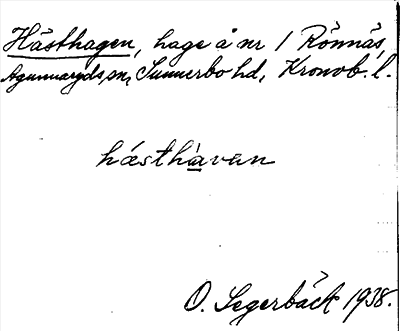 Hästhagen, hage å nr 1 Rönnäs,
Agunnaryds sn, Sunnerbo hd, Kronob. l.
hästhàvan
O. Segerbäck 1938.